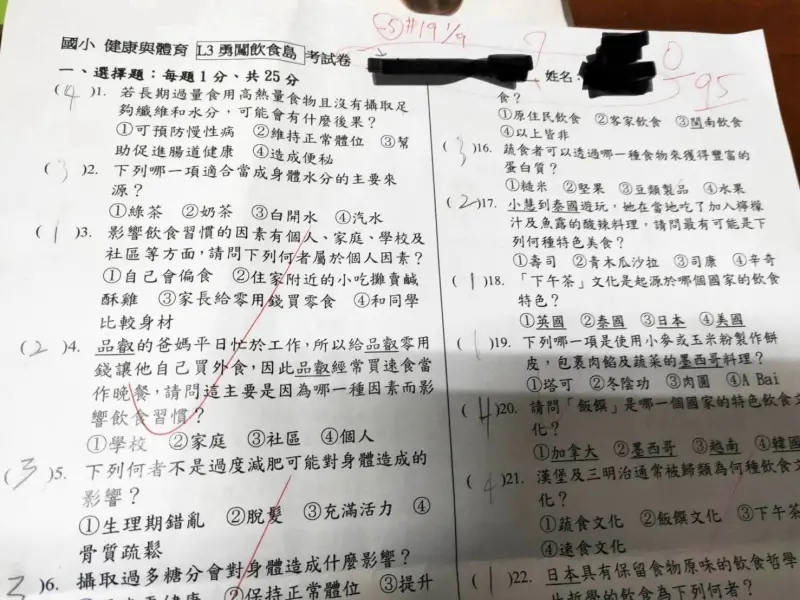 國小 健康與體育 L3 勇闖飲食島 考試卷
一、選擇題：每題1分、共25分
(4)1. 若長期過量食用高熱量食物且沒有攝取足
夠纖維和水分，可能會有什麼後果？
①可預防慢性病 ②維持正常體位 ③幫
助促進腸道健康 ④造成便秘
(3)2. 下列哪一項適合當成身體水分的主要來
源？
①綠茶 ②奶茶 ③白開水 ④汽水
(1)3. 影響飲食習慣的因素有個人、家庭、學校及
社區等方面，請問下列何者屬於個人因素？
①自己會偏食 ②住家附近的小吃攤賣鹹
酥雞 ③家長給零用錢買零食 ④和同學
比較身材
(2)4. 品叡的爸媽平日忙於工作，所以給品叡零用
錢讓他自己買外食，因此品叡經常買速食當
作晚餐，請問這主要是因為哪一種因素而影
響飲食習慣？
①學校 ②家庭 ③社區 ④個人
(3)5. 下列何者不是過度減肥可能對身體造成的
影響？
①生理期錯亂 ②脫髮 ③充滿活力 ④
骨質疏鬆
)6. 攝取過多糖分會對身體造成什麼影響？
②保持正常體位 ③提升
-5 #19 1/9
姓名：
95
食？
①原住民飲食 ②客家飲食 ③閩南飲食
④以上皆非
(3)16. 蔬食者可以透過哪一種食物來獲得豐富的
蛋白質？
①糙米 ②堅果 ③豆類製品 ④水果
(2)17. 小慧到泰國遊玩，她在當地吃了加入檸檬
汁及魚露的酸辣料理，請問最有可能是下
列何種特色美食？
①壽司 ②青木瓜沙拉 ③司康 ④辛奇
(1)18. 「下午茶」文化是起源於哪個國家的飲食
特色？
①英國 ②泰國 ③日本 ④美國
(1)19. 下列哪一項是使用小麥或玉米粉製作餅
皮，包裹肉餡及蔬菜的墨西哥料理？
①塔可 ②冬陰功 ③肉圓 ④A Bai
(4)20. 請問「飯饌」是哪一個國家的特色飲食文
化？
①加拿大 ②墨西哥 ③越南 ④韓國
(4)21. 漢堡及三明治通常被歸類為何種飲食文
化？
①蔬食文化 ②飯饌文化 ③下午茶
④速食文化
(1)22. 日本具有保留食物原味的飲食哲學
哲學的飲食為下列何者？